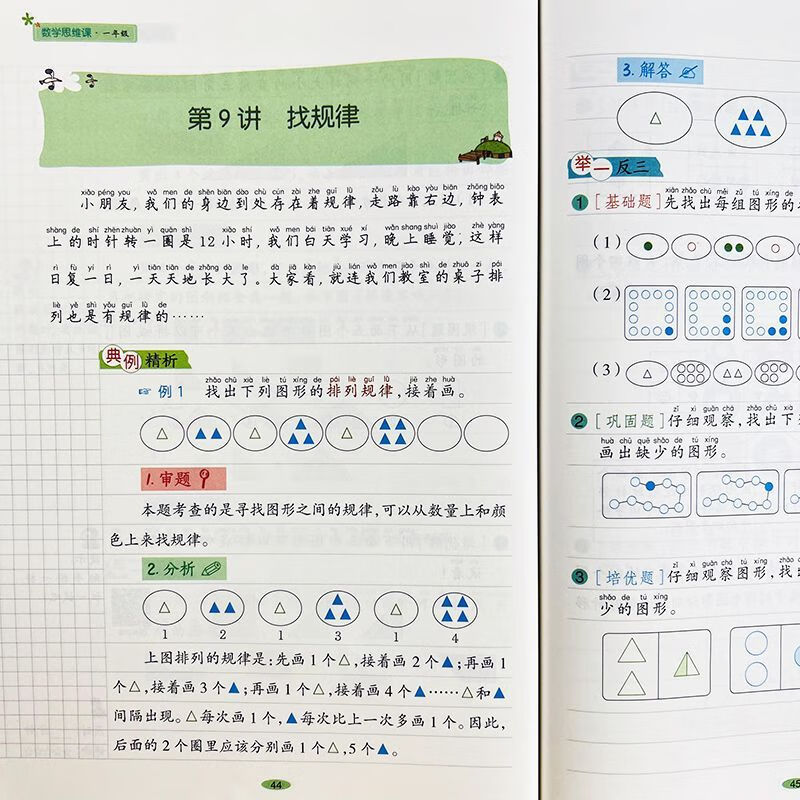 数学思维课·一年级
第9讲 找规律
xiǎo péng you wǒ men de shēn biān dào chù cún zài zhe guī lǜ zǒu lù kào yòu biān zhōng biǎo
小朋友,我们的身边到处存在着规律,走路靠右边,钟表
shàng de shí zhēn zhuàn yì quān shì xiǎo shí wǒ men bái tiān xué xí wǎn shàng shuì jiào zhè yàng
上的时针转一圈是12小时,我们白天学习,晚上睡觉,这样
rì fù yí rì yì tiān tiān de zhǎng dà le dà jiā kàn jiù lián wǒ men jiào shì de zhuō zi pái
日复一日,一天天地长大了。大家看,就连我们教室的桌子排
liè yě shì yǒu guī lǜ de
列也是有规律的……
典例精析
zhǎo chū xià liè tú xíng de pái liè guī lǜ jiē zhe huà
例1 找出下列图形的排列规律,接着画。
1.审题
本题考查的是寻找图形之间的规律,可以从数量上和颜
色上来找规律。
2.分析
1 2 1 3 1 4
上图排列的规律是:先画1个△,接着画2个▲;再画1
个△,接着画3个▲;再画1个△,接着画4个▲……△和▲
间隔出现。△每次画1个,▲每次比上一次多画1个。因此,
后面的2个圈里应该分别画1个△,5个▲。
44
3.解答
举一反三
xiān zhǎo chū měi zǔ tú xíng de
1 [基础题]先找出每组图形的
(1)
(2)
(3)
zǐ xì guān chá zhǎo chū xià
2 [巩固题]仔细观察,找出下
huà chū quē shǎo de tú xíng
画出缺少的图形。
zǐ xì guān chá tú xíng zhǎo
3 [培优题]仔细观察图形,找
shǎo de tú xíng
少的图形。
45